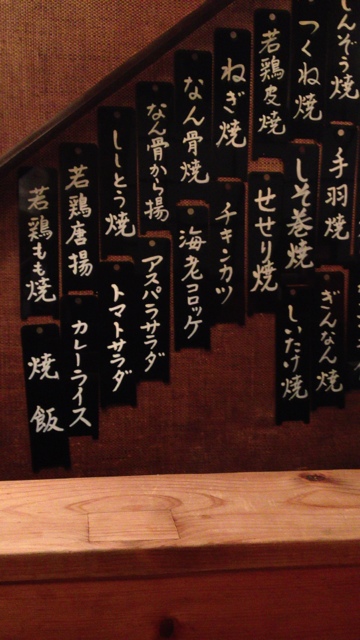 しんぞう焼
つくね焼
若鶏皮焼
ねぎ焼
なん骨焼
なん骨から揚
ししとう焼
若鶏唐揚
若鶏もも焼
手羽焼
しそ巻焼
せせり焼
チキンカツ
海老コロッケ
アスパラサラダ
トマトサラダ
カレーライス
焼飯
ぎんなん焼
しいたけ焼